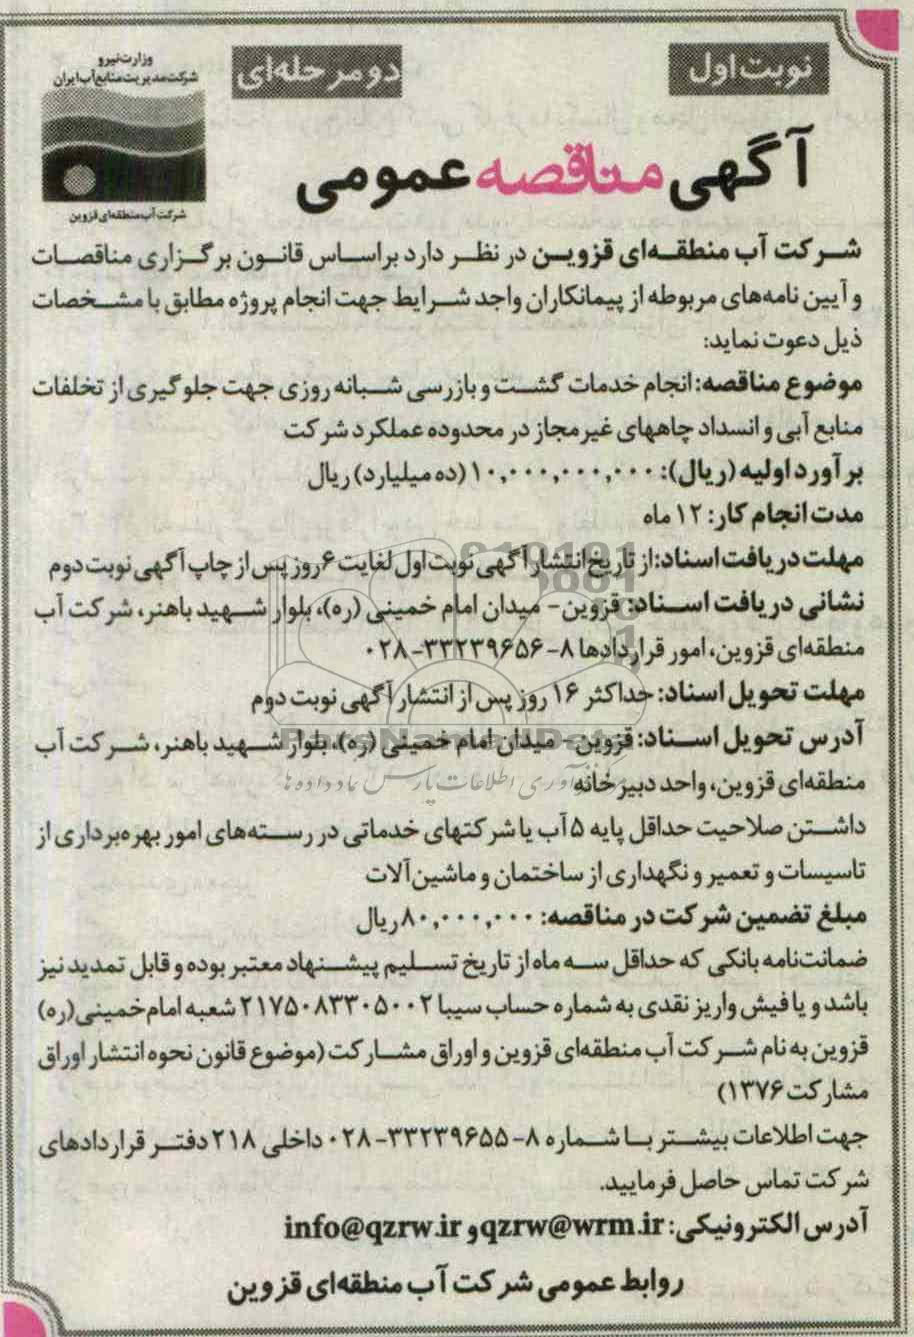 نوبت اول
دو مرحله‌ای
وزارت نیرو
شرکت مدیریت منابع آب ایران
شرکت آب منطقه‌ای قزوین
آگهی مناقصه عمومی
شرکت آب منطقه‌ای قزوین در نظر دارد براساس قانون برگزاری مناقصات
و آیین نامه‌های مربوطه از پیمانکاران واجد شرایط جهت انجام پروژه مطابق با مشخصات
ذیل دعوت نماید:
موضوع مناقصه: انجام خدمات گشت و بازرسی شبانه روزی جهت جلوگیری از تخلفات
منابع آبی و انسداد چاههای غیرمجاز در محدوده عملکرد شرکت
برآورد اولیه (ریال): ۱۰,۰۰۰,۰۰۰,۰۰۰ (ده میلیارد) ریال
مدت انجام کار: ۱۲ ماه
مهلت دریافت اسناد: از تاریخ انتشار آگهی نوبت اول لغایت ۶ روز پس از چاپ آگهی نوبت دوم
نشانی دریافت اسناد: قزوین - میدان امام خمینی (ره)، بلوار شهید باهنر، شرکت آب
منطقه‌ای قزوین، امور قراردادها ۸-۳۳۲۳۹۶۵۶-۰۲۸
مهلت تحویل اسناد: حداکثر ۱۶ روز پس از انتشار آگهی نوبت دوم
آدرس تحویل اسناد: قزوین - میدان امام خمینی (ره)، بلوار شهید باهنر، شرکت آب
منطقه‌ای قزوین، واحد دبیرخانه
داشتن صلاحیت حداقل پایه ۵ آب یا شرکتهای خدماتی در رسته‌های امور بهره‌برداری از
تاسیسات و تعمیر و نگهداری از ساختمان و ماشین‌آلات
مبلغ تضمین شرکت در مناقصه: ۸۰,۰۰۰,۰۰۰ ریال
ضمانت‌نامه بانکی که حداقل سه ماه از تاریخ تسلیم پیشنهاد معتبر بوده و قابل تمدید نیز
باشد و یا فیش واریز نقدی به شماره حساب سیبا ۲۱۷۵۰۸۳۳۰۵۰۰۲ شعبه امام خمینی (ره)
قزوین به نام شرکت آب منطقه‌ای قزوین و اوراق مشارکت (موضوع قانون نحوه انتشار اوراق
مشارکت ۱۳۷۶)
جهت اطلاعات بیشتر با شماره ۸-۳۳۲۳۹۶۵۵-۰۲۸ داخلی ۲۱۸ دفتر قراردادهای
شرکت تماس حاصل فرمایید.
آدرس الکترونیکی: qzrw@wrm.ir و info@qzrw.ir
روابط عمومی شرکت آب منطقه‌ای قزوین